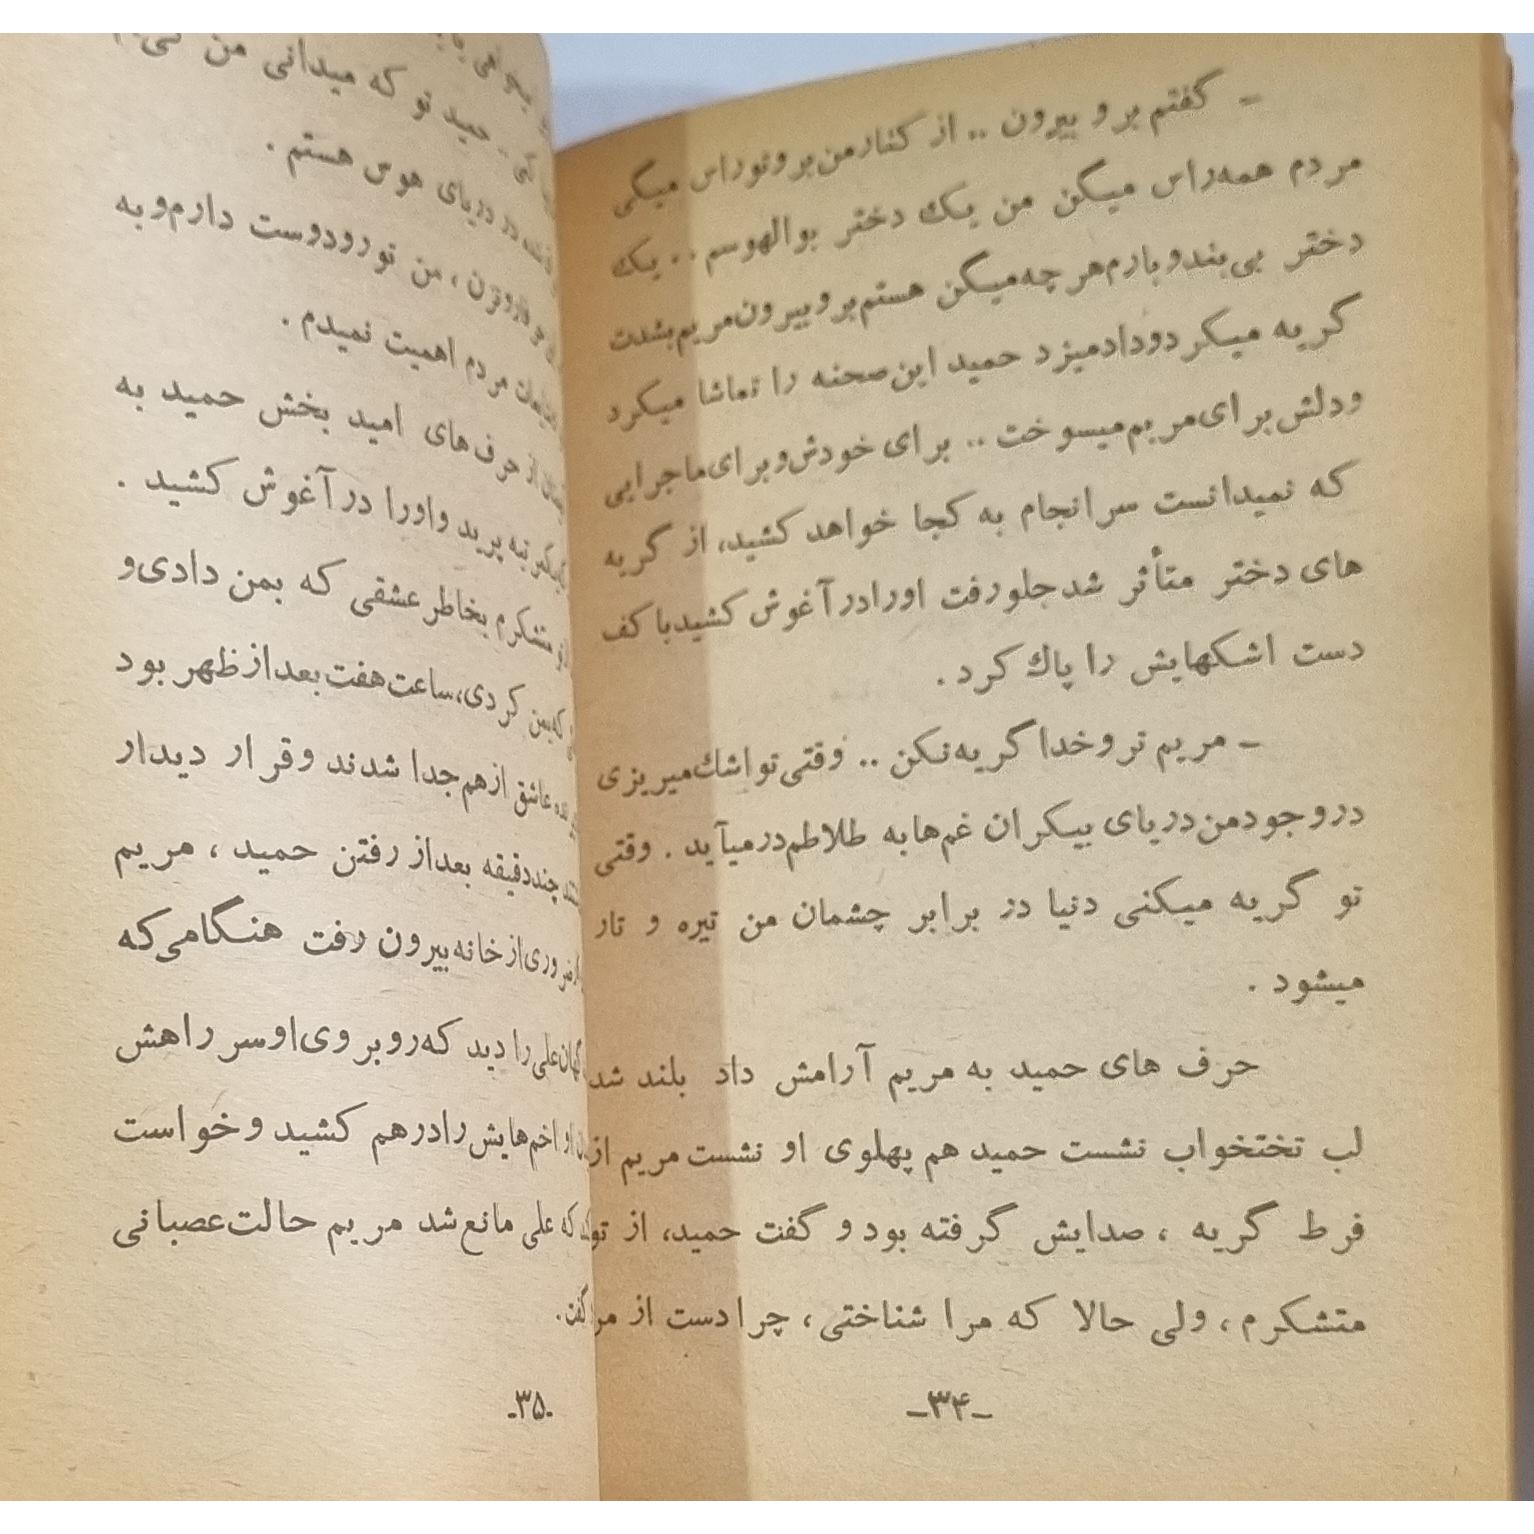 ـ گفتم برو بیرون .. از کنارمن‌برو‌توراس میگی
مردم همه‌راس میگن من یک دختر بوالهوسم .. یک
دختر بی‌بندوبارم‌هرچه‌میگن هستم‌بروبیرون‌مریم‌بشدت
گریه میکردودادمیزد حمید این‌صحنه را تماشا میکرد
ودلش‌برای‌مریم‌میسوخت .. برای خودش‌وبرای‌ماجرایی
که نمیدانست سرانجام به کجا خواهد کشید، از گریه
های دختر متأثر شدجلورفت اورادرآغوش کشیدباکف
دست اشکهایش را پاك کرد .
ـ مریم تروخداگریه‌نکن .. وقتی‌تواشك‌میریزی
دروجودمن‌دریای بیکران غم‌هابه طلاطم‌درمیآید . وقتی
تو گریه میکنی دنیا در برابر چشمان من تیره و تار
میشود .
حرف های حمید به مریم آرامش داد بلند شد
لب تختخواب نشست حمید هم پهلوی او نشست مریم از
فرط گریه ، صدایش گرفته بود و گفت حمید، از تو
متشکرم ، ولی حالا که مرا شناختی ، چرا دست از مر
-۳۴-
حمید تو که میدانی من
در دریای هوس هستم .
من تورودوست دارم‌وبه
مردم اهمیت نمیدم .
از حرف‌های امید بخش حمید به
پرید واورا درآغوش کشید .
متشکرم بخاطرعشقی که بمن دادی‌و
که‌بمن کردی،ساعت‌هفت‌بعدازظهر بود
عاشق ازهم‌جدا شدند وقرار دیدار
چنددقیقه بعداز رفتن حمید ، مریم
ازخانه‌بیرون رفت هنگامی‌که
علی‌را دید که‌روبروی‌اوسر راهش
اخم‌هایش‌رادرهم کشید وخواست
که علی مانع‌شد مریم حالت‌عصبانی
گفت.
-۳۵-